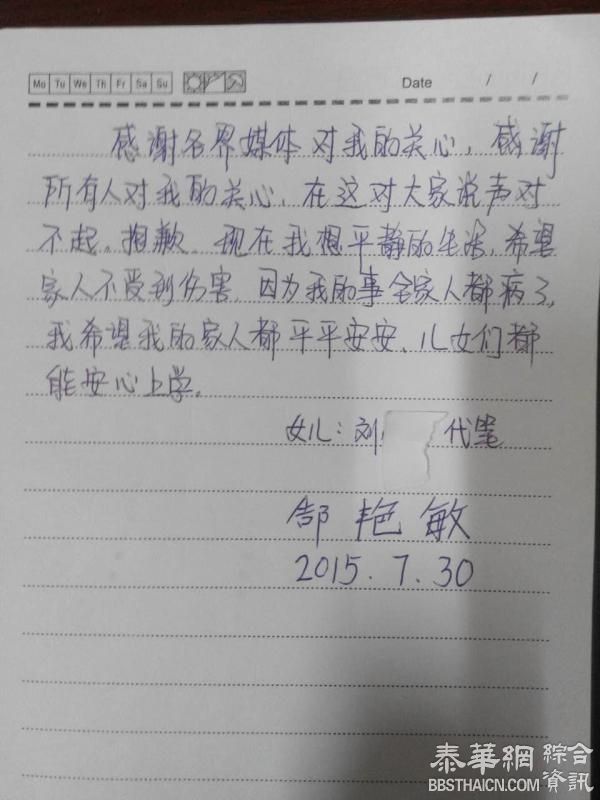 Mo Tu We Th Fr Sa Su
Date / /
感谢各界媒体对我的关心，感谢
所有人对我的关心，在这对大家说声对
不起。抱歉。现在我想平静的生活，希望
家人不受到伤害，因为我的事全家人都病了，
我希望我的家人都平平安安、儿女们都
能安心上学。
女儿：刘 代笔
郜艳敏
2015.7.30
泰華網 綜合資訊
BBSTHAICN.COM